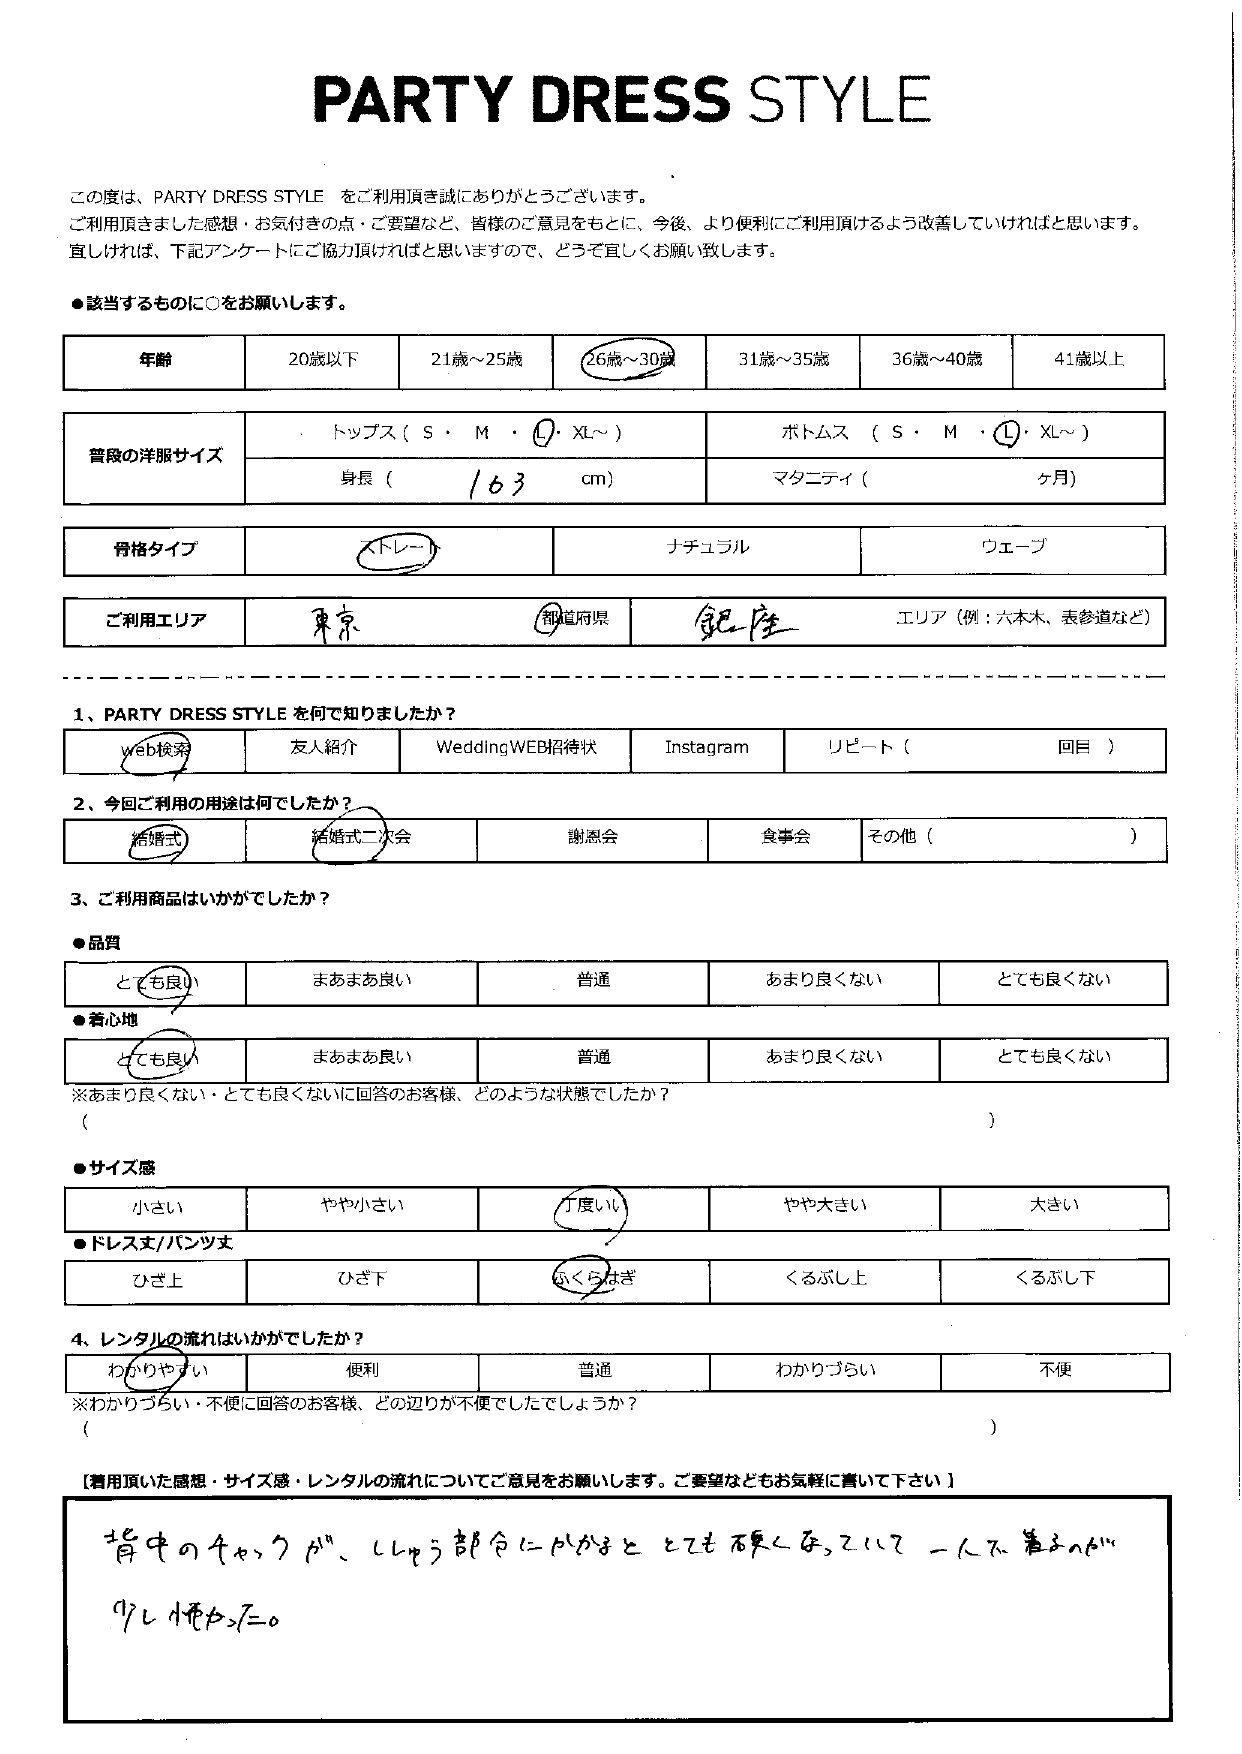 PARTY DRESS STYLE
この度は、PARTY DRESS STYLE をご利用頂き誠にありがとうございます。
ご利用頂きました感想・お気付きの点・ご要望など、皆様のご意見をもとに、今後、より便利にご利用頂けるよう改善していければと思います。
宜しければ、下記アンケートにご協力頂ければと思いますので、どうぞ宜しくお願い致します。
●該当するものに○をお願いします。
年齢 20歳以下 21歳～25歳 26歳～30歳 31歳～35歳 36歳～40歳 41歳以上
普段の洋服サイズ トップス ( S ・ M ・ L ・ XL～ ) ボトムス ( S ・ M ・ L ・ XL～ )
身長 ( 163 cm) マタニティ ( ヶ月)
骨格タイプ ストレート ナチュラル ウェーブ
ご利用エリア 東京 都道府県 銀座 エリア（例：六本木、表参道など）
1、PARTY DRESS STYLE を何で知りましたか？
web検索 友人紹介 WeddingWEB招待状 Instagram リピート ( 回目 )
2、今回ご利用の用途は何でしたか？
結婚式 結婚式二次会 謝恩会 食事会 その他 ( )
3、ご利用商品はいかがでしたか？
●品質
とても良い まあまあ良い 普通 あまり良くない とても良くない
●着心地
とても良い まあまあ良い 普通 あまり良くない とても良くない
※あまり良くない・とても良くないに回答のお客様、どのような状態でしたか？
( )
●サイズ感
小さい やや小さい 丁度いい やや大きい 大きい
●ドレス丈/パンツ丈
ひざ上 ひざ下 ふくらはぎ くるぶし上 くるぶし下
4、レンタルの流れはいかがでしたか？
わかりやすい 便利 普通 わかりづらい 不便
※わかりづらい・不便に回答のお客様、どの辺りが不便でしたでしょうか？
( )
[着用頂いた感想・サイズ感・レンタルの流れについてご意見をお願いします。ご要望などもお気軽に書いて下さい ]
背中のチャックが、ししゅう部分にかかると とても硬くなっていて 一人で着るのが
少し怖かった。